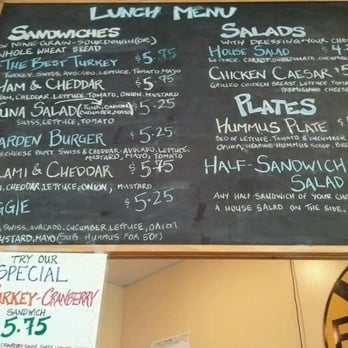 LUNCH MENU
SANDWICHES
NINE-GRAIN-SOURDOUGH(OR)
WHOLE WHEAT BREAD
THE BEST TURKEY $5.75
TURKEY, SWISS, AVOCADO, LETTUCE, TOMATO, MAYO
HAM & CHEDDAR $5.75
HAM, CHEDDAR, LETTUCE, TOMATO, ONION, MUSTARD
TUNA SALAD $5.25
SWISS, LETTUCE, TOMATO
GARDEN BURGER $5.25
SWISS & CHEDDAR, AVOCADO, LETTUCE,
MUSTARD, MAYO, TOMATO
SALAMI & CHEDDAR 5.75
CHEDDAR, LETTUCE, ONION, MUSTARD
VEGGIE $5.25
SWISS, AVOCADO, CUCUMBER, LETTUCE, ONION
MUSTARD, MAYO (SUB HUMMUS FOR 50¢)
SALADS
WITH DRESSING
HOUSE SALAD $4
LETTUCE, CARROT, CUCUMBER
CHICKEN CAESAR
GRILLED CHICKEN BREAST
PARMESAN CHEESE
PLATES
HUMMUS PLATE $
BED OF LETTUCE, TOMATO & CUCUMBER
ONION, HEAPING HUMMUS SCOOP
HALF-SANDWICH
SALAD
ANY HALF SANDWICH OF YOUR
A HOUSE SALAD ON THE SIDE.
TRY OUR
SPECIAL
TURKEY-CRANBERRY
SANDWICH
5.75